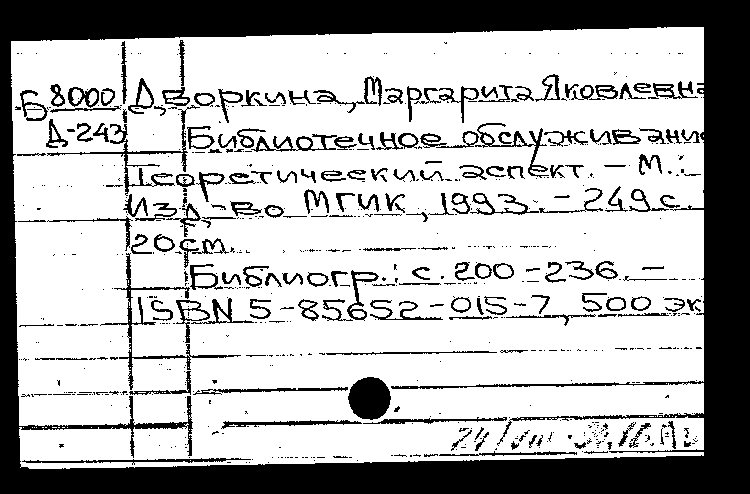 Б 8000 Дворкина, Маргарита Яковлевна
Д-243 Библиотечное обслуживание
Теоретический аспект. – М.:
Изд-во МГИК, 1993. – 249 с.
20 см.
Библиогр.: с. 200-236. –
ISBN 5-85652-015-7, 500 эк
24/VIII